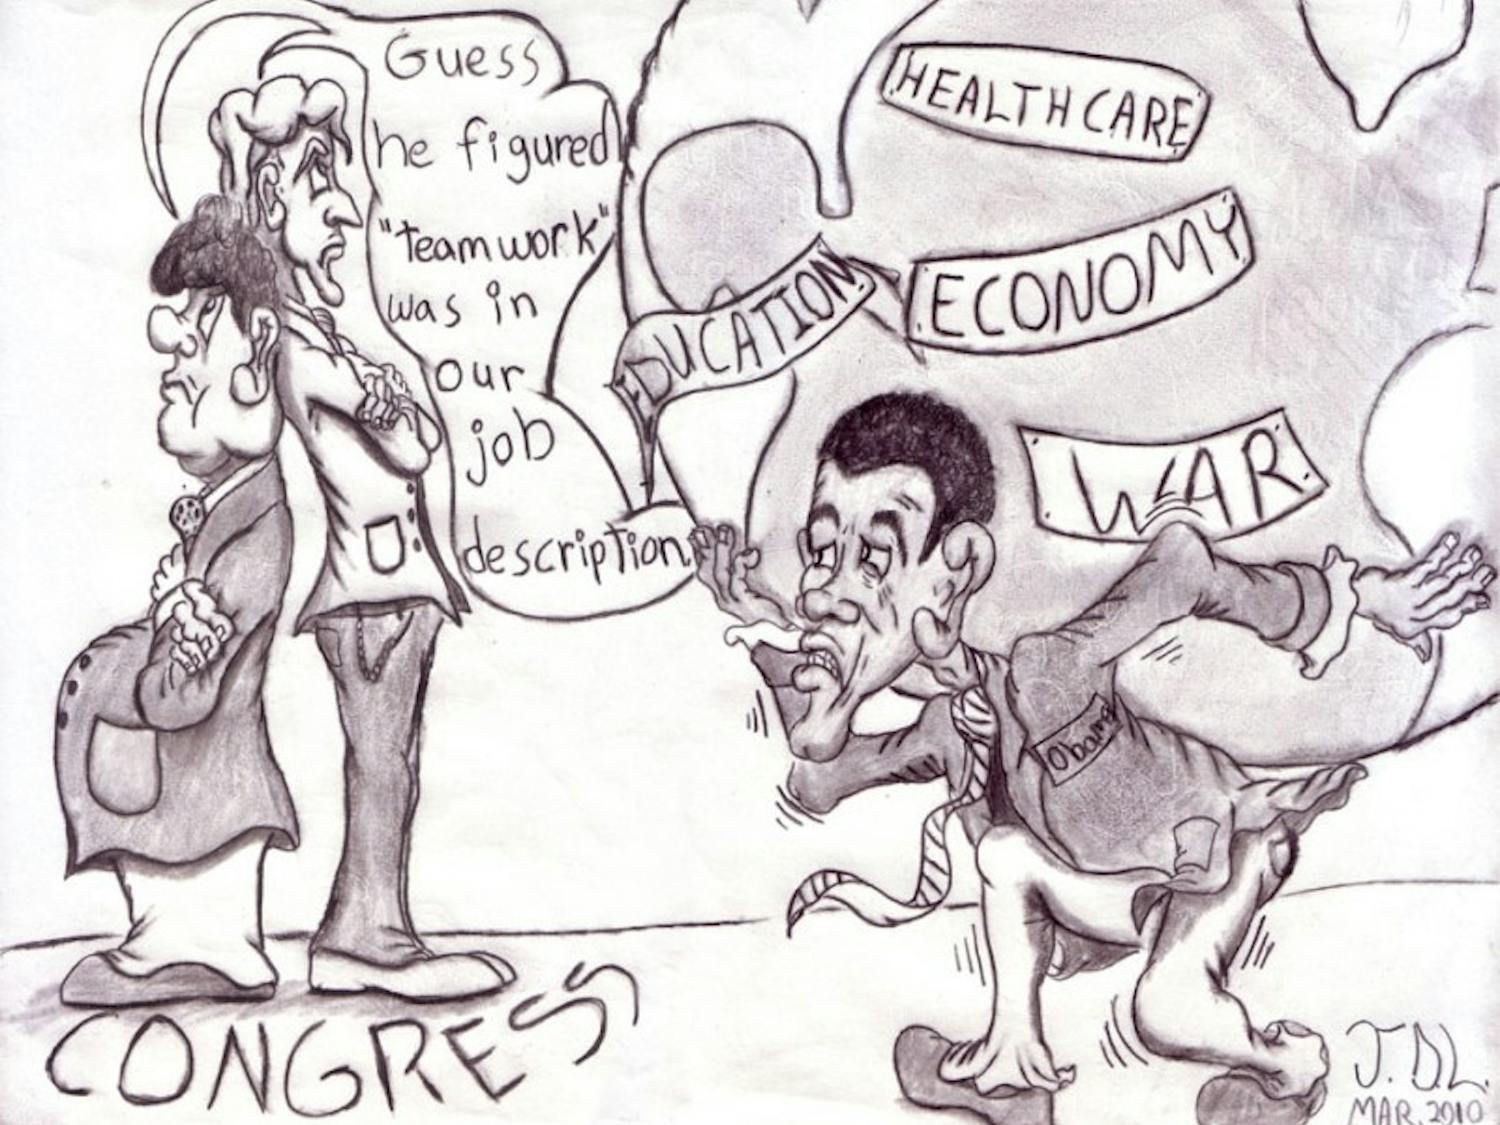 Guess
he figured
"teamwork"
was in
our
job
description.
HEALTHCARE
EDUCATION
ECONOMY
WAR
Obama
CONGRESS
J.D.L.
MAR. 2010